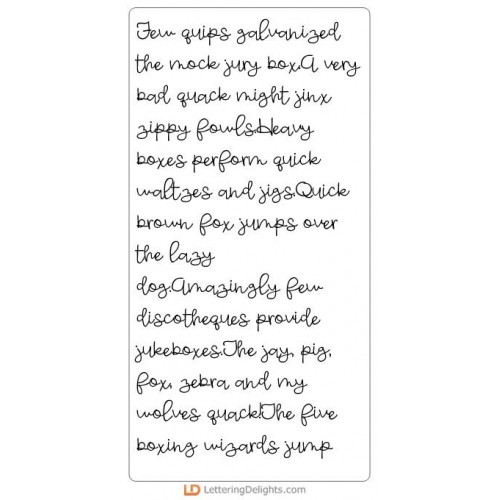 Few quips galvanized
the mock jury box.A very
bad quack might jinx
zippy fowls.Heavy
boxes perform quick
waltzes and jigs.Quick
brown fox jumps over
the lazy
dog.Amazingly few
discotheques provide
jukeboxes.The jay, pig,
fox, zebra and my
wolves quack!The five
boxing wizards jump
LD LetteringDelights.com